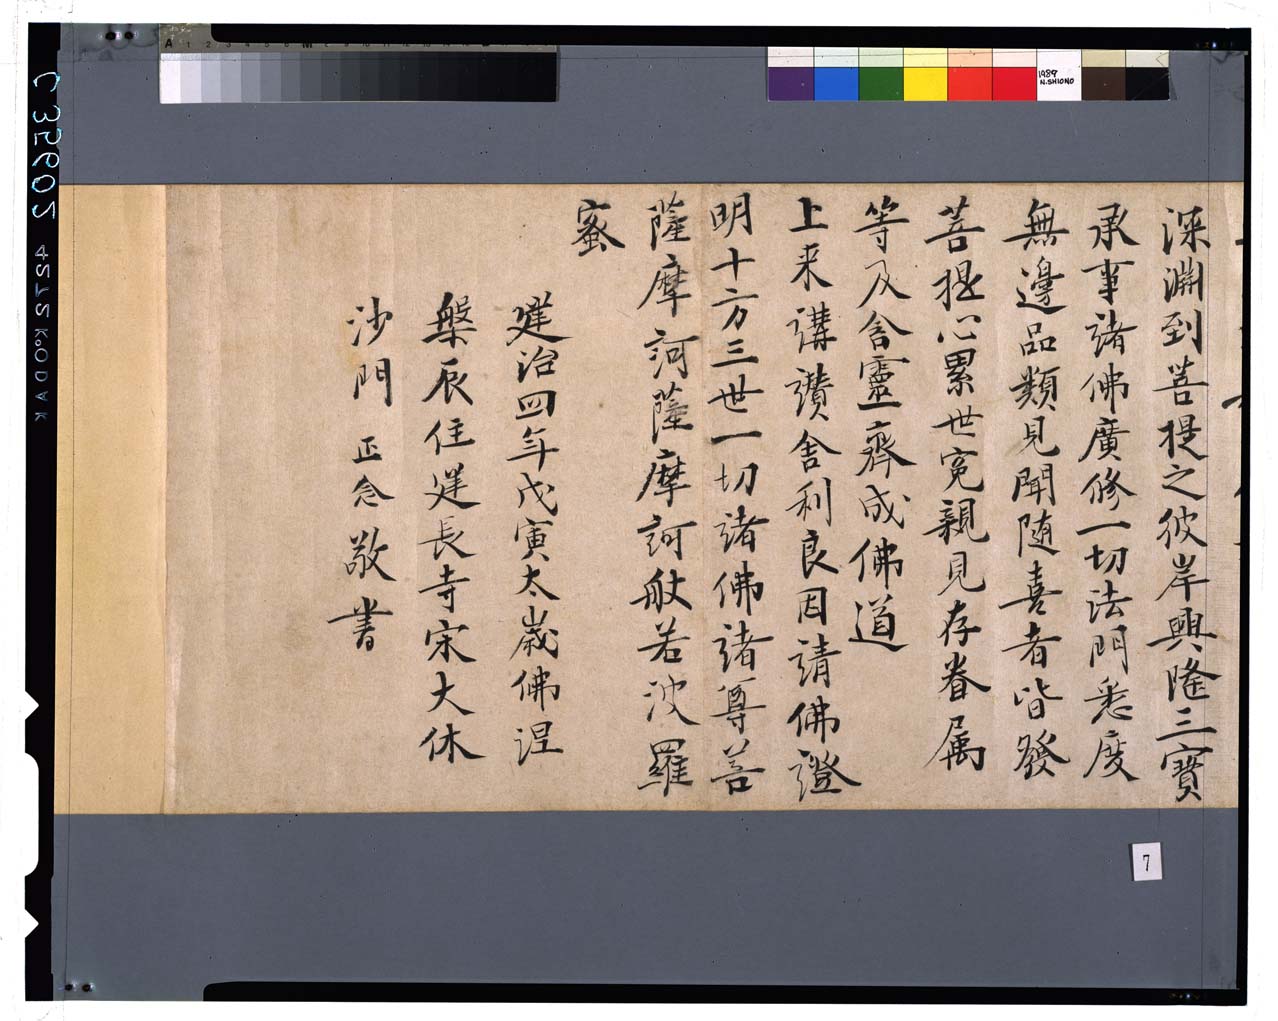 深淵到菩提之彼岸興隆三寶
承事諸佛廣修一切法門悉度
無邊品類見聞随喜者皆發
菩提心累世寃親見存眷属
等及含靈齊成佛道
上来講讃舎利良因請佛證
明十方三世一切諸佛諸尊菩
薩摩訶薩摩訶般若波羅
蜜
建治四年戊寅太歳佛涅
槃辰住建長寺宋大休
沙門 正念敬書
7
1989
N.SHIONO
C35602
4212 KODAK